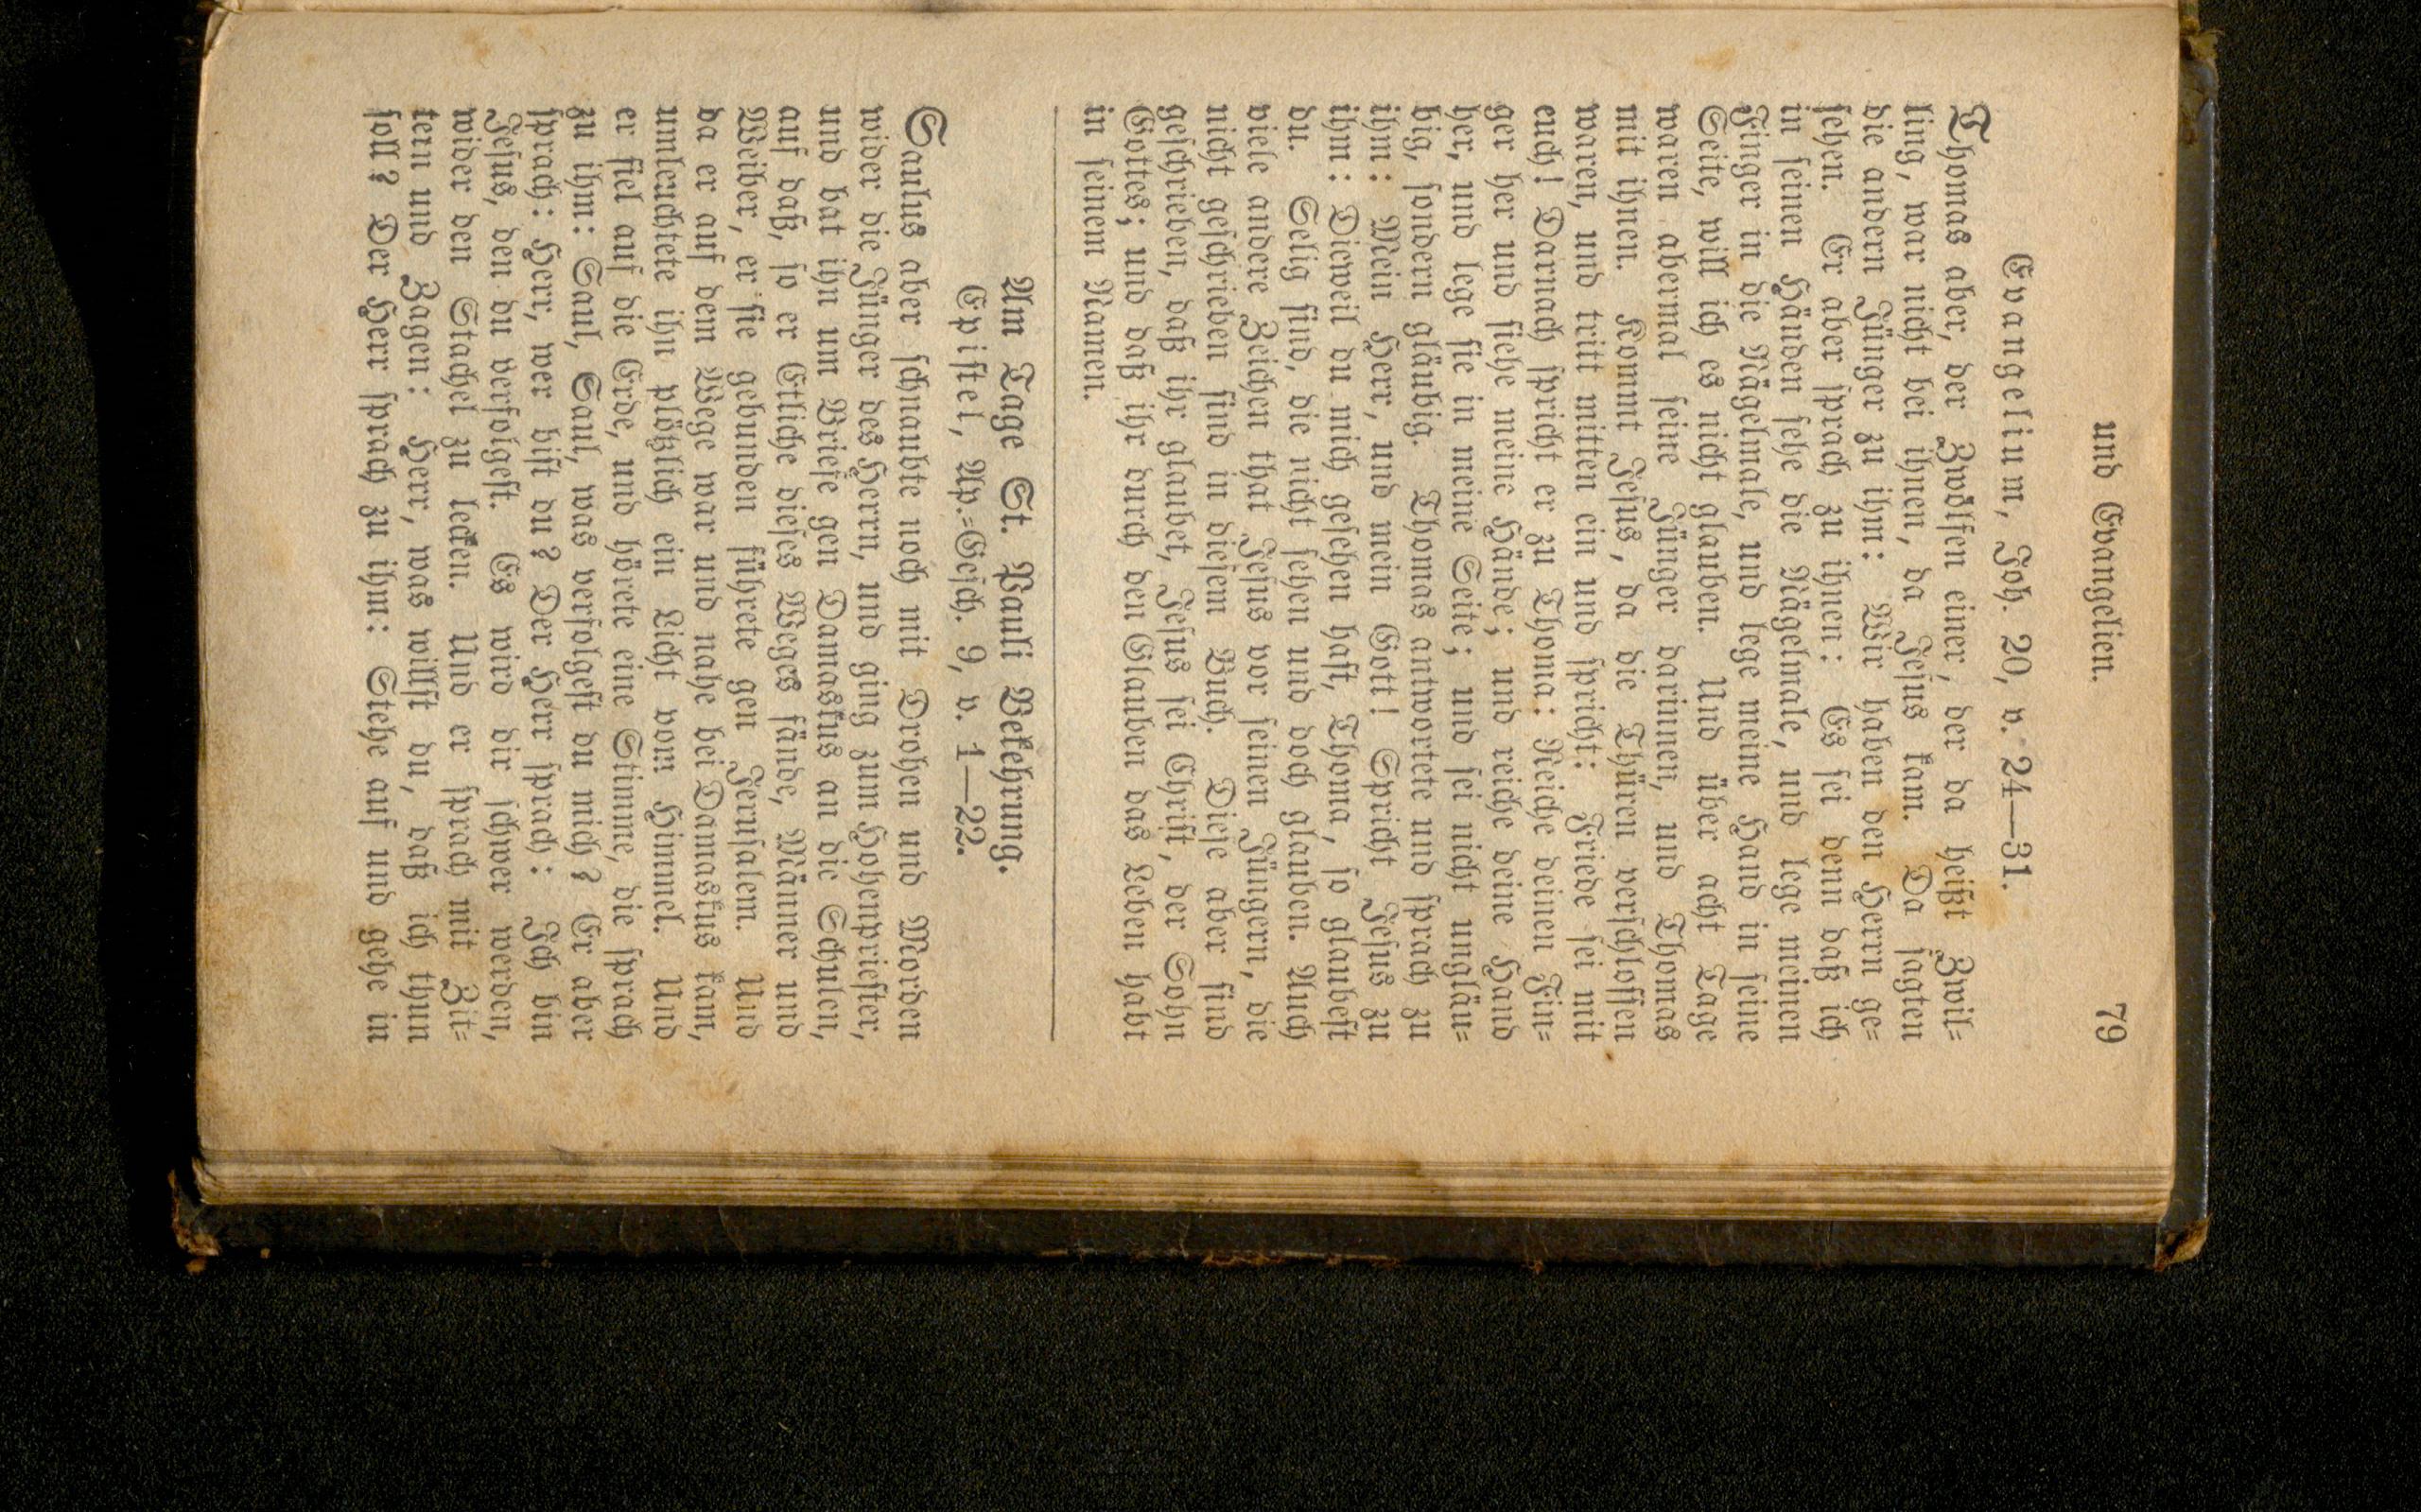 und Evangelien. 79
Evangelium, Joh. 20, v. 24—31.
Thomas aber, der Zwölfen einer, der da heißt Zwil=
ling, war nicht bei ihnen, da Jesus kam. Da sagten
die andern Jünger zu ihm: Wir haben den Herrn ge=
sehen. Er aber sprach zu ihnen: Es sei denn daß ich
in seinen Händen sehe die Nägelmale, und lege meinen
Finger in die Nägelmale, und lege meine Hand in seine
Seite, will ich es nicht glauben. Und über acht Tage
waren abermal seine Jünger darinnen, und Thomas
mit ihnen. Kommt Jesus, da die Thüren verschlossen
waren, und tritt mitten ein und spricht: Friede sei mit
euch! Darnach spricht er zu Thoma: Reiche deinen Fin=
ger her und siehe meine Hände; und reiche deine Hand
her, und lege sie in meine Seite; und sei nicht ungläu=
big, sondern gläubig. Thomas antwortete und sprach zu
ihm: Mein Herr, und mein Gott! Spricht Jesus zu
ihm: Dieweil du mich gesehen hast, Thoma, so glaubest
du. Selig sind, die nicht sehen und doch glauben. Auch
viele andere Zeichen that Jesus vor seinen Jüngern, die
nicht geschrieben sind in diesem Buch. Diese aber sind
geschrieben, daß ihr glaubet, Jesus sei Christ, der Sohn
Gottes; und daß ihr durch den Glauben das Leben habt
in seinem Namen.
Am Tage St. Pauli Bekehrung.
Epistel, Ap.=Gesch. 9, v. 1—22.
Saulus aber schnaubte noch mit Drohen und Morden
wider die Jünger des Herrn, und ging zum Hohenpriester,
und bat ihn um Briefe gen Damaskus an die Schulen,
auf daß, so er Etliche dieses Weges fände, Männer und
Weiber, er sie gebunden führete gen Jerusalem. Und
da er auf dem Wege war und nahe bei Damaskus kam,
umleuchtete ihn plötzlich ein Licht vom Himmel. Und
er fiel auf die Erde, und hörete eine Stimme, die sprach
zu ihm: Saul, Saul, was verfolgest du mich? Er aber
sprach: Herr, wer bist du? Der Herr sprach: Ich bin
Jesus, den du verfolgest. Es wird dir schwer werden,
wider den Stachel zu lecken. Und er sprach mit Zit=
tern und Zagen: Herr, was willst du, daß ich thun
soll? Der Herr sprach zu ihm: Stehe auf und gehe in